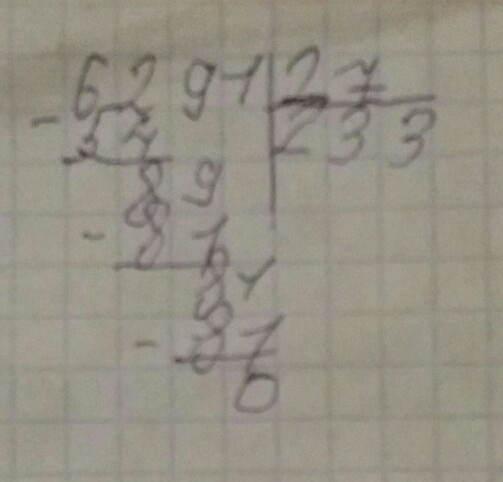 6291 27
- 54 233
89
- 81
81
- 81
0